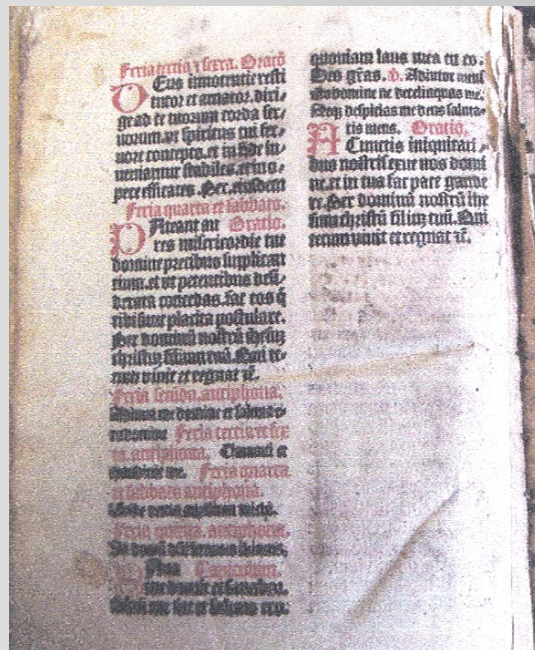 Feria tertia ⁊ sexta. Oratio
DEus innocentie resti
tutor et amator. diri/
ge ad te tuorum corda ser/
uorum. vt spiritus tui fer/
uore concepto. et in fide in/
ueniantur stabiles. et in o/
pere efficaces. Per. eiusdem
Feria quarta et sabbato.
PAteant au Oratio.
res misericordie tue
domine precibus supplican
tium. et vt petentibus desi/
derata concedas. fac eos q̄
tibi sunt placita postulare.
Per dominū nostrū
christū filium tuū. Qui te/
cum viuit et regnat
Feria secūda. antiphona.
Adiuua me domine et saluus e/
Feria tertia et sex
ta. antiphona. et
me. Feria quarta
et sabbato antiphona.
Feria quinta. antiphona.
Capitulum.
me domine et sanabor.
saluum me fac et saluus ero.
quoniam laus mea tu es.
Deo grās. Adiutor meus
esto domine ne derelinquas me.
Neqʒ despicias me deus saluta/
ris meus. Oratio.
A Cunctis iniquitati/
bus nostris exue nos domi
ne. et in tua fac pace gaude
re. Per dominū nostrū ihe
sum christū filium tuū. Qui
tecum viuit et regnat